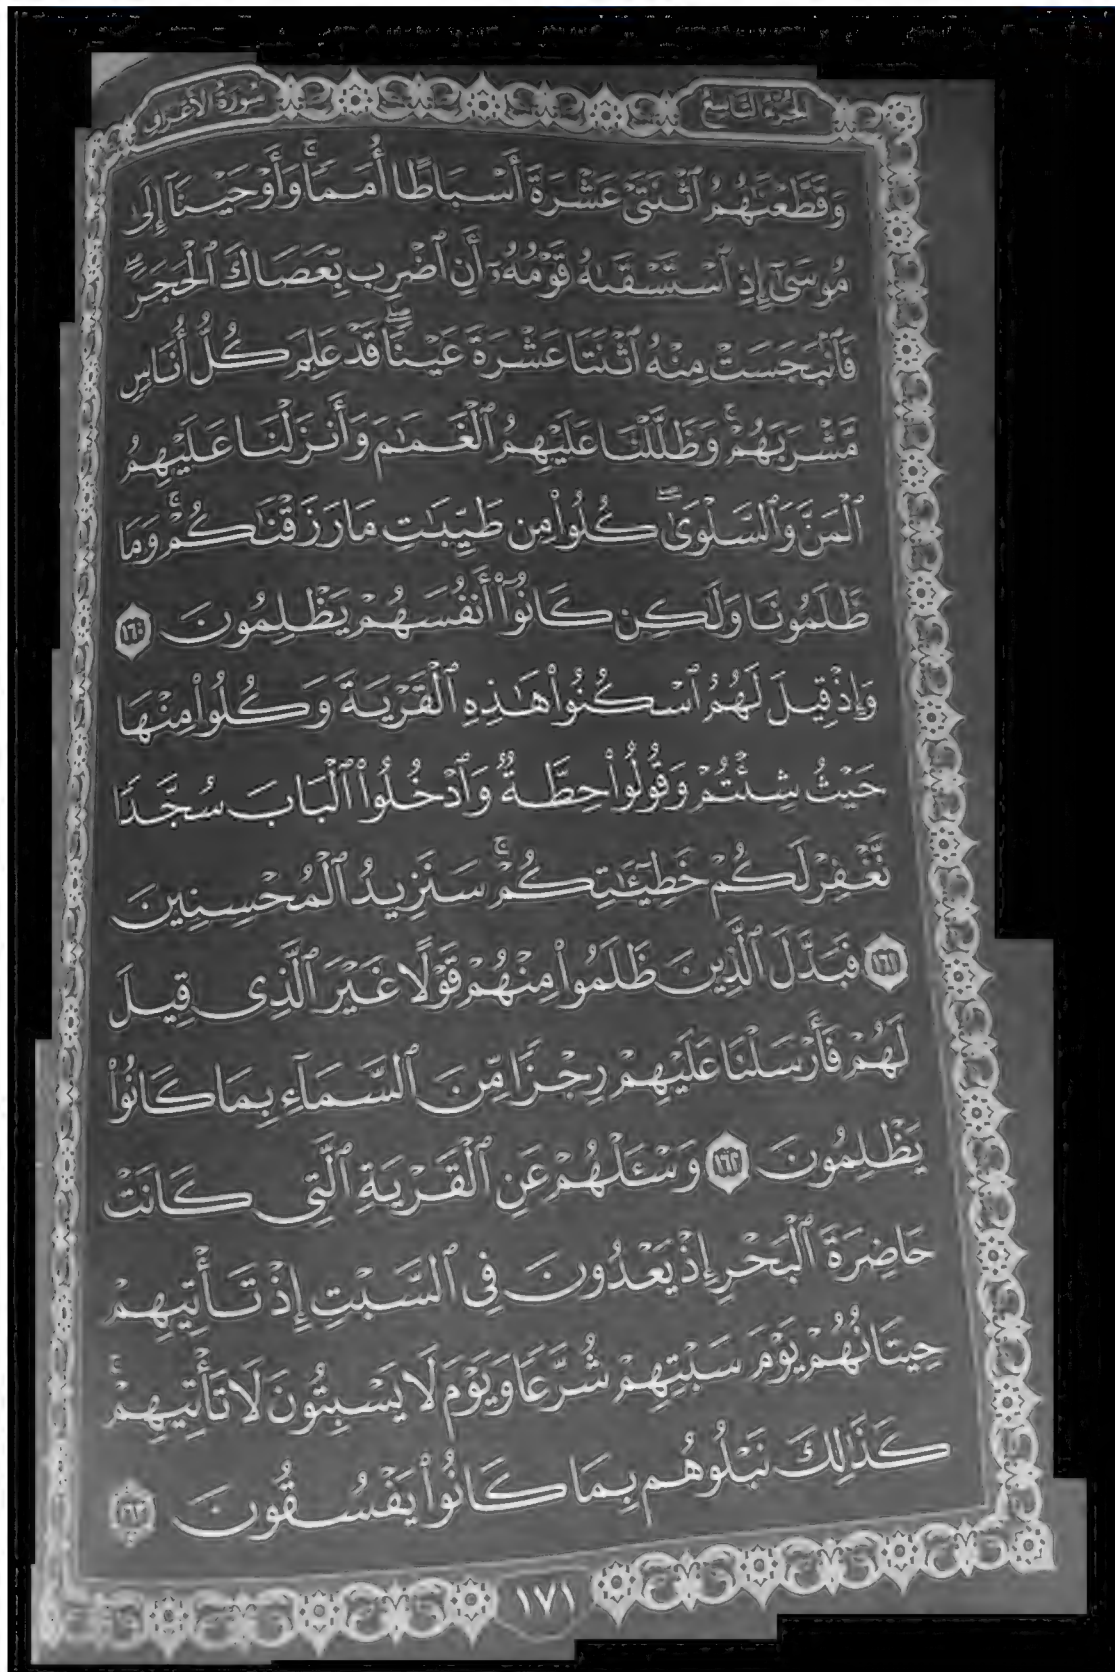 الجزء التاسع
سورة الأعراف
وَقَطَّعْنَٰهُمُ ٱثْنَتَىْ عَشْرَةَ أَسْبَاطًا أُمَمًا ۚ وَأَوْحَيْنَآ إِلَىٰ
مُوسَىٰٓ إِذِ ٱسْتَسْقَىٰهُ قَوْمُهُۥٓ أَنِ ٱضْرِب بِّعَصَاكَ ٱلْحَجَرَ ۖ
فَٱنۢبَجَسَتْ مِنْهُ ٱثْنَتَا عَشْرَةَ عَيْنًا ۖ قَدْ عَلِمَ كُلُّ أُنَاسٍ
مَّشْرَبَهُمْ ۚ وَظَلَّلْنَا عَلَيْهِمُ ٱلْغَمَٰمَ وَأَنزَلْنَا عَلَيْهِمُ
ٱلْمَنَّ وَٱلسَّلْوَىٰ ۖ كُلُوا۟ مِن طَيِّبَٰتِ مَا رَزَقْنَٰكُمْ ۚ وَمَا
ظَلَمُونَا وَلَٰكِن كَانُوٓا۟ أَنفُسَهُمْ يَظْلِمُونَ ١٦٠
وَإِذْ قِيلَ لَهُمُ ٱسْكُنُوا۟ هَٰذِهِ ٱلْقَرْيَةَ وَكُلُوا۟ مِنْهَا
حَيْثُ شِئْتُمْ وَقُولُوا۟ حِطَّةٌ وَٱدْخُلُوا۟ ٱلْبَابَ سُجَّدًا
نَّغْفِرْ لَكُمْ خَطِيٓـَٰٔتِكُمْ ۚ سَنَزِيدُ ٱلْمُحْسِنِينَ
١٦١ فَبَدَّلَ ٱلَّذِينَ ظَلَمُوا۟ مِنْهُمْ قَوْلًا غَيْرَ ٱلَّذِى قِيلَ
لَهُمْ فَأَرْسَلْنَا عَلَيْهِمْ رِجْزًا مِّنَ ٱلسَّمَآءِ بِمَا كَانُوا۟
يَظْلِمُونَ ١٦٢ وَسْـَٔلْهُمْ عَنِ ٱلْقَرْيَةِ ٱلَّتِى كَانَتْ
حَاضِرَةَ ٱلْبَحْرِ إِذْ يَعْدُونَ فِى ٱلسَّبْتِ إِذْ تَأْتِيهِمْ
حِيتَانُهُمْ يَوْمَ سَبْتِهِمْ شُرَّعًا وَيَوْمَ لَا يَسْبِتُونَ لَا تَأْتِيهِمْ ۚ
كَذَٰلِكَ نَبْلُوهُم بِمَا كَانُوا۟ يَفْسُقُونَ ١٦٣
١٧١